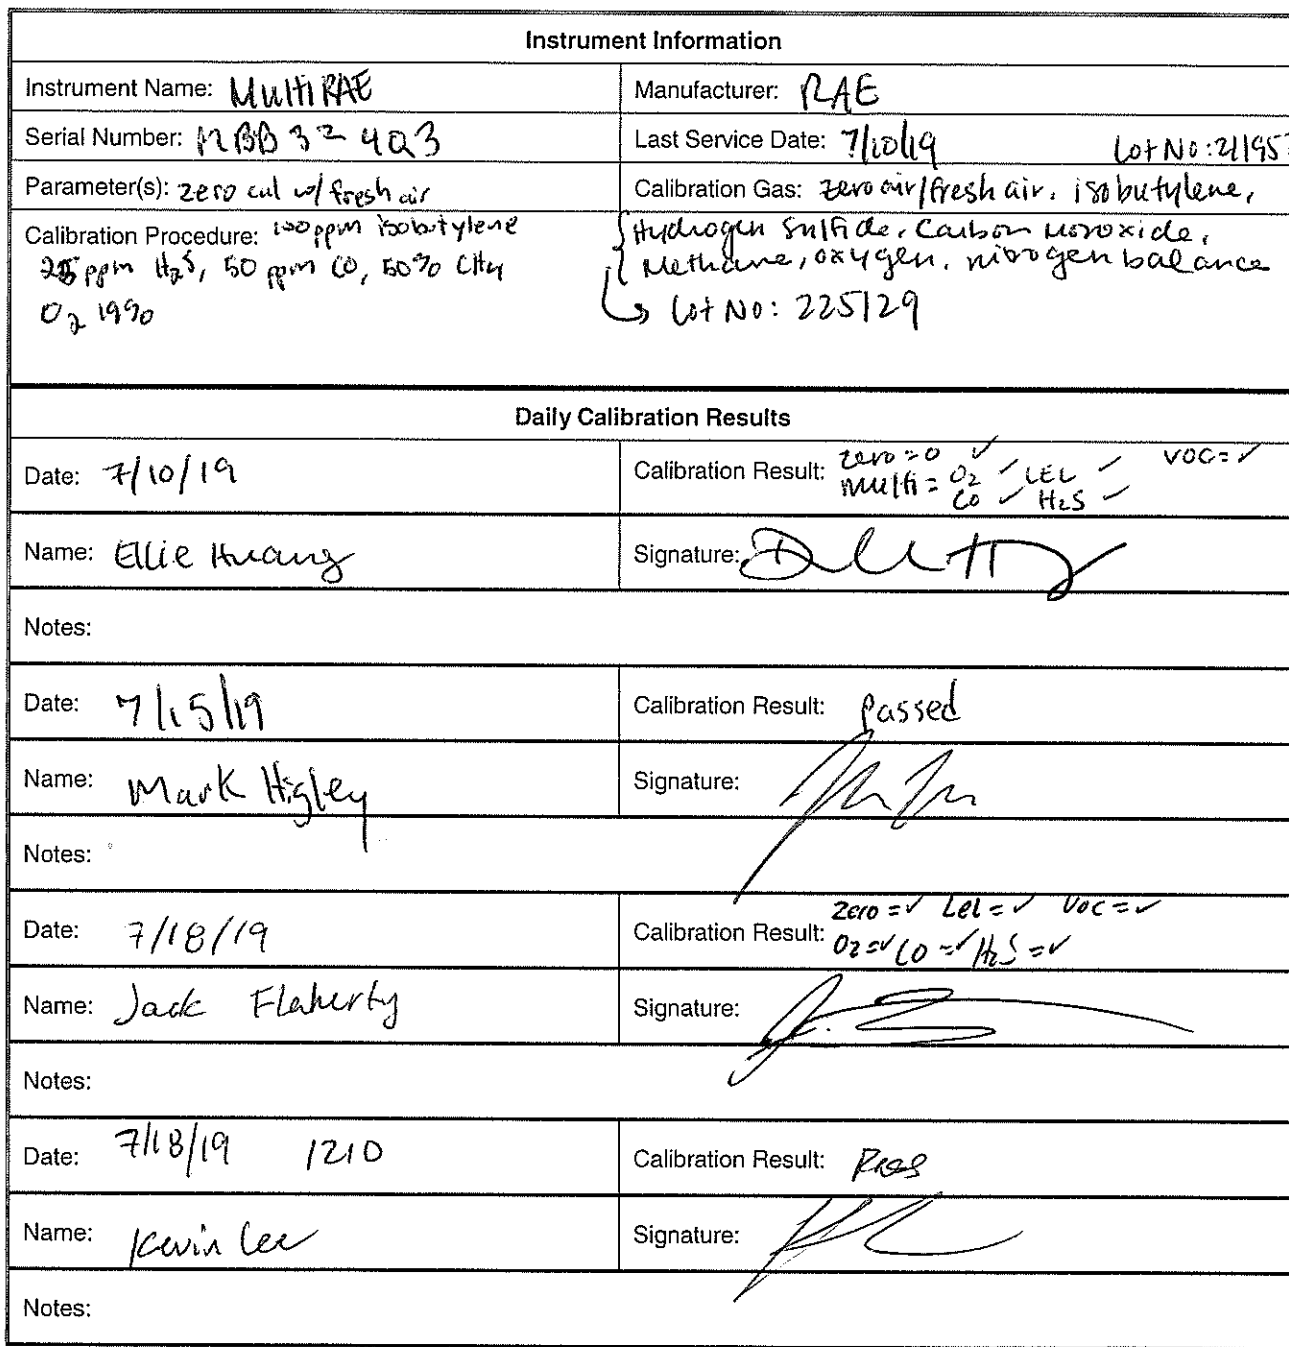 Instrument Information
Instrument Name: MultiRAE
Manufacturer: RAE
Serial Number: MBB32 4Q3
Last Service Date: 7/10/19 Lot No: 211957
Parameter(s): zero cal w/ fresh air
Calibration Gas: zero air/fresh air, isobutylene,
Calibration Procedure: 100 ppm isobutylene
25 ppm H₂S, 50 ppm CO, 50% CH4
O₂ 19%
Hydrogen Sulfide, Carbon Monoxide,
Methane, oxygen, nirogen balance
Lot No: 225129
Daily Calibration Results
Date: 7/10/19
Calibration Result: zero = 0 ✓ VOC = ✓
multi = O₂ ✓ LEL ✓
CO ✓ H₂S ✓
Name: Ellie Huang
Signature:
Notes:
Date: 7/15/19
Calibration Result: Passed
Name: Mark Higley
Signature:
Notes:
Date: 7/18/19
Calibration Result: Zero = ✓ Lel = ✓ VOC = ✓
O2 = ✓ CO = ✓ H₂S = ✓
Name: Jack Flaherty
Signature:
Notes:
Date: 7/18/19 1210
Calibration Result: Pass
Name: Kevin Lee
Signature:
Notes: